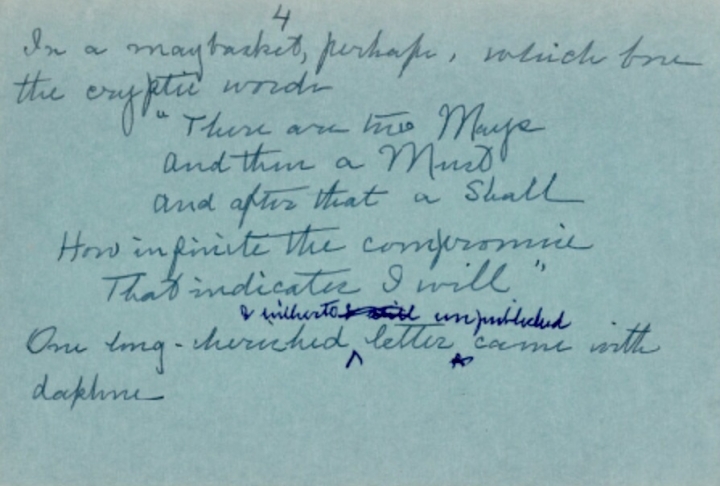 4
In a maybasket, perhaps, which bore
the cryptic words
"There are two Mays
and then a Must
and after that a Shall
How infinite the compromise
That indicates I will"
& hitherto unpublished
One long-cherished ^ letter came with
daphne